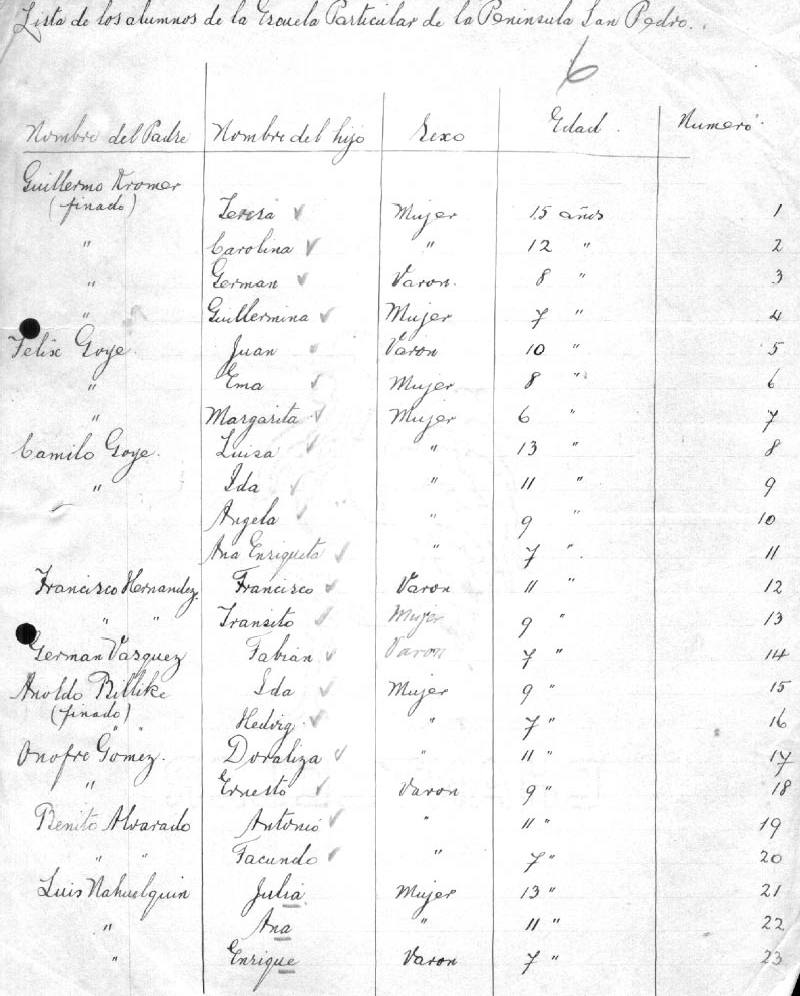 Lista de los alumnos de la Escuela Particular de la Peninsula San Pedro.
6
Nombre del Padre Nombre del hijo Sexo Edad. Numero
Guillermo Kromer
(finado) Teresa ✓ Mujer 15 años 1
" Carolina ✓ " 12 " 2
" German ✓ Varon. 8 " 3
" Guillermina ✓ Mujer 7 " 4
Felix Goye. Juan ✓ Varon 10 " 5
" Ema ✓ Mujer 8 " 6
" Margarita ✓ Mujer 6 " 7
Camilo Goye. Luisa ✓ " 13 " 8
" Ida ✓ " 11 " 9
Angela ✓ " 9 " 10
Ana Enriqueta ✓ " 7 " 11
Francisco Hernandez. Francisco ✓ Varon 11 " 12
" " Transito ✓ Mujer 9 " 13
German Vasquez Fabian ✓ Varon 7 " 14
Anoldo Billike Ida ✓ Mujer 9 " 15
(finado) " Hedvig ✓ " 7 " 16
Onofre Gomez. Doraliza ✓ " 11 " 17
" Ernesto ✓ Varon 9 " 18
Benito Alvarado Antonio ✓ " 11 " 19
" " Facundo ✓ " 7 " 20
Luis Nahuelquin Julia Mujer 13 " 21
" Ana " 11 " 22
" Enrique Varon 7 " 23